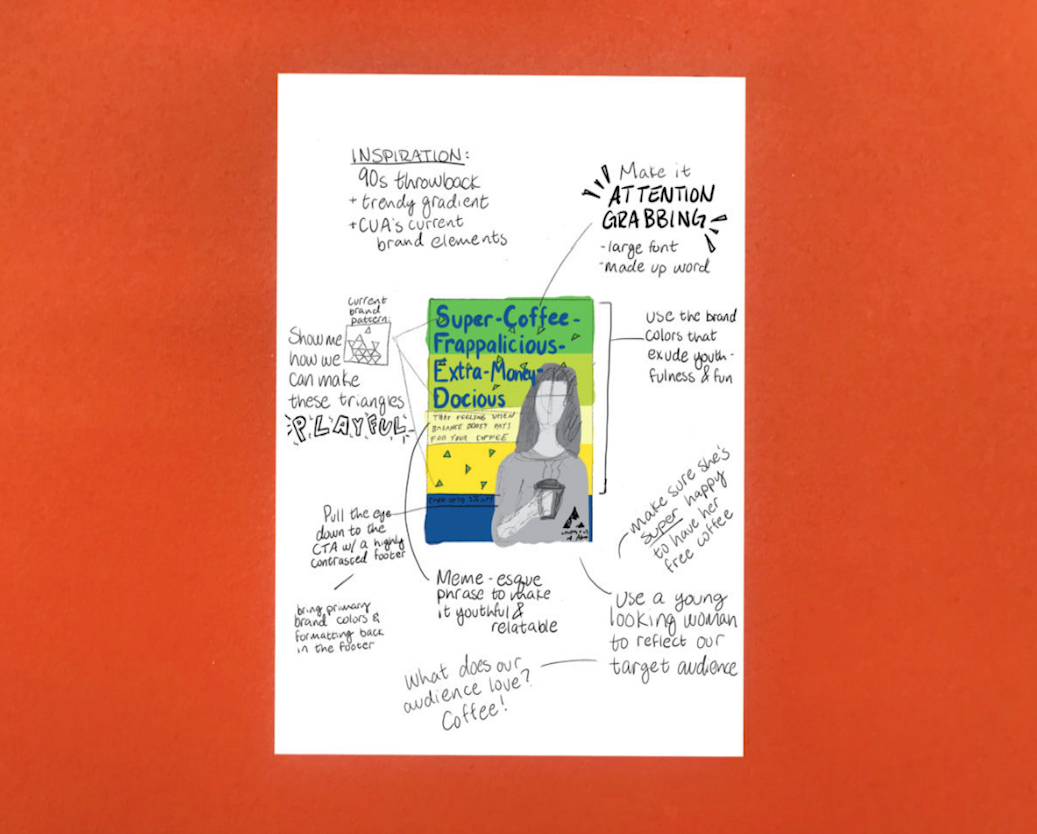 INSPIRATION:
90s throwback
+ trendy gradient
+ CUA's current
brand elements
Make it
ATTENTION
GRABBING
-large font
-made up word
current
brand
pattern:
Show me
how we
can make
these triangles
PLAYFUL
Super-Coffee-
Frappalicious-
Extra-Money-
Docious
THAT FEELING WHEN
BALANCE BOOST PAYS
FOR YOUR COFFEE
use the brand
colors that
exude youth-
fulness & fun
make sure she's
super happy
to have her
free coffee
Pull the eye
down to the
CTA w/ a highly
contrasted footer
bring primary
brand colors &
formatting back
in the footer
Meme-esque
phrase to make
it youthful &
relatable
Use a young
looking woman
to reflect our
target audience
What does our
audience love?
Coffee!